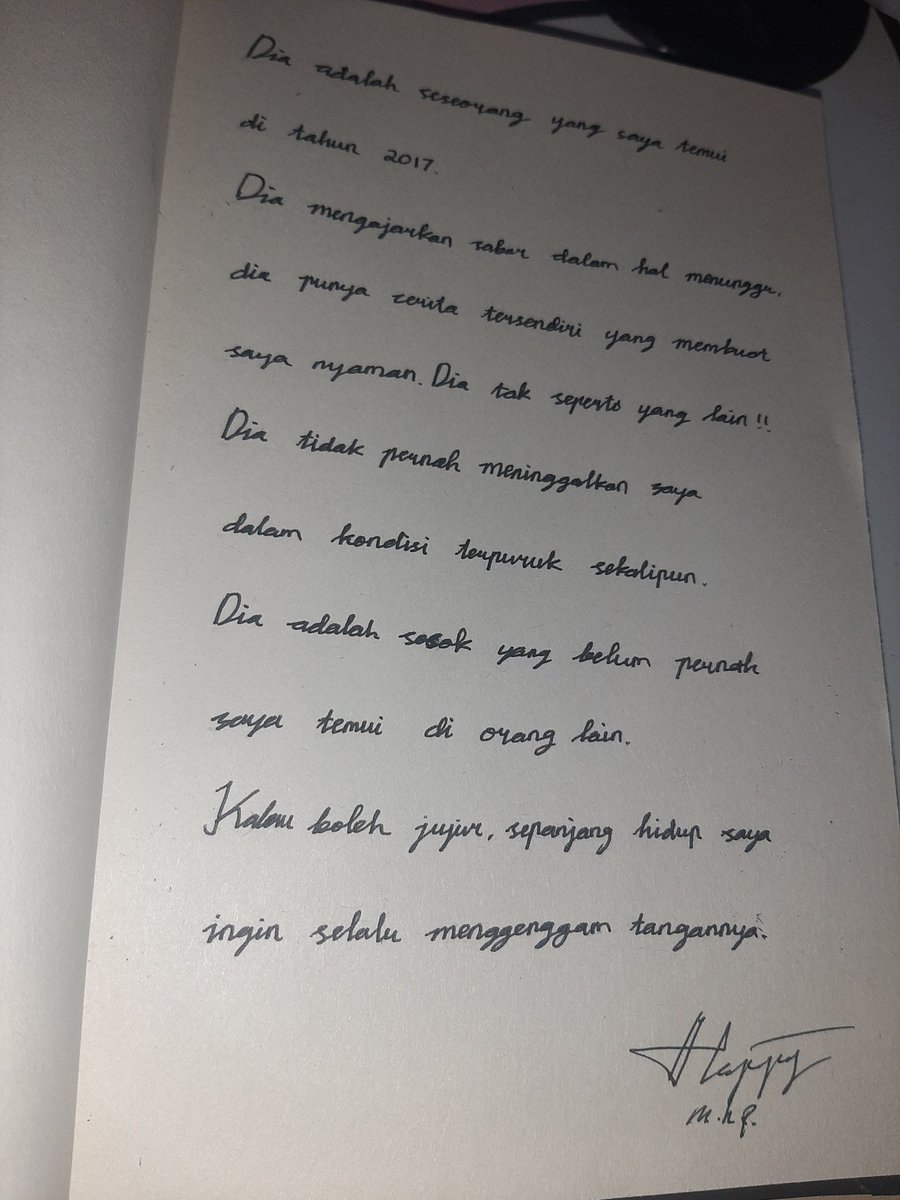 Dia adalah seseorang yang saya temui
di tahun 2017.
Dia mengajarkan sabar dalam hal menunggu,
dia punya cerita tersendiri yang membuat
saya nyaman. Dia tak seperto yang lain!!
Dia tidak pernah meninggalkan saya
dalam kondisi terpuruk sekalipun.
Dia adalah sosok yang belum pernah
saya temui di orang lain.
Kalau boleh jujur, sepanjang hidup saya
ingin selalu menggenggam tangannya.
Happy
m.h.p.